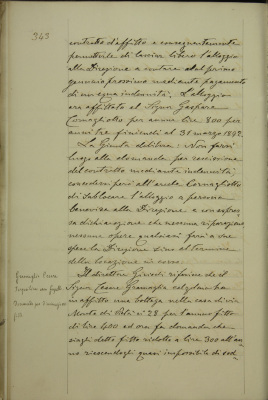 363
contratto d'affitto e conseguentemente
permettergli di lasciar libero l'alloggio
alla Direzione a contare dal primo
gennaio prossimo mediante pagamento
di un'equa indennità. L'alloggio
era affittato al Signor Gaspare
Cornagliotto per annue lire 800 per
anni tre finiendi al 31 marzo 1892.
La Giunta delibera: Non farsi
luogo alla domanda per rescissione
del contratto mediante indennità,
concedersi però all'erede Cornagliotto
di sublocare l'alloggio a persona
benevisa alla Direzione e con espres-
sa dichiarazione che nessuna riparazione
nessuna opera qualsiasi farà a sue
spese la Direzione sino al termine
della locazione in corso.
Gramaglia Cesare
Domanda per diminuzione
fitto
Il direttore riferisce che il
Signor Cesare Gramaglia calzolaio ha
in affitto una bottega nella casa di via
Monte di Pietà n. 28 per l'annuo fitto
di lire 400 ed ora fa domanda che
siagli detto fitto ridotto a lire 300 all'an-
no riescendogli quasi impossibile di sod-